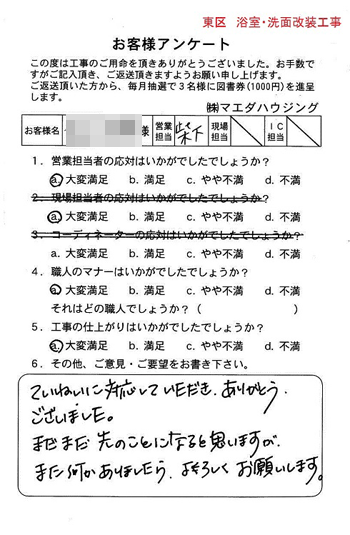 東区 浴室・洗面改装工事
お客様アンケート
この度は工事のご用命を頂きありがとうございました。お手数で
すがご記入頂き、ご返送頂きますようお願い申し上げます。
ご返送頂いた方から、毎月抽選で3名様に図書券(1000円)を進呈
します。
㈱マエダハウジング
お客様名 様 営業担当 柴下 現場担当 IC担当
1．営業担当者の応対はいかがでしたでしょうか？
a. 大変満足 b. 満足 c. やや不満 d. 不満
2．現場担当者の応対はいかがでしたでしょうか？
a. 大変満足 b. 満足 c. やや不満 d. 不満
3．コーディネーターの応対はいかがでしたでしょうか？
a. 大変満足 b. 満足 c. やや不満 d. 不満
4．職人のマナーはいかがでしたでしょうか？
a. 大変満足 b. 満足 c. やや不満 d. 不満
それはどの職人でしょうか？（ ）
5．工事の仕上がりはいかがでしたでしょうか？
a. 大変満足 b. 満足 c. やや不満 d. 不満
6．その他、ご意見・ご要望をお書き下さい。
ていねいに対応していただき、ありがとう
ございました。
まだまだ先のことになると思いますが、
また何かありましたら、よろしくお願いします。